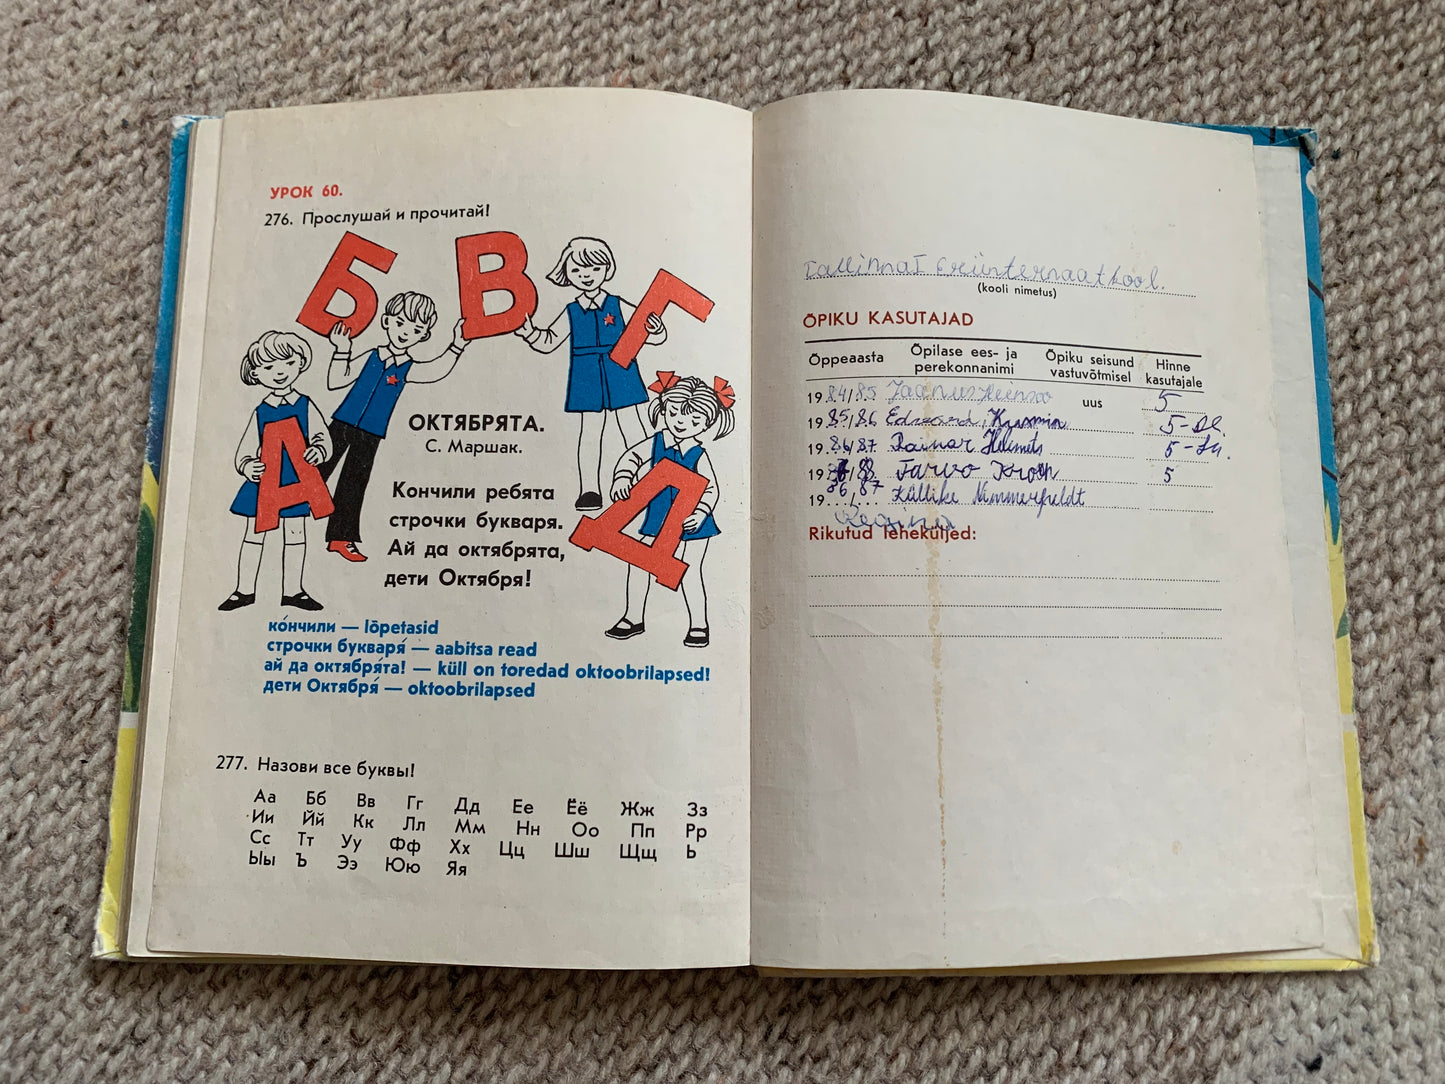 УРОК 60.
276. Прослушай и прочитай!
А Б В Г Д
ОКТЯБРЯТА.
С. Маршак.
Кончили ребята
строчки букваря.
Ай да октябрята,
дети Октября!
ко́нчили — lõpetasid
строчки букваря́ — aabitsa read
ай да октября́та! — küll on toredad oktoobrilapsed!
дети Октября́ — oktoobrilapsed
277. Назови все буквы!
Аа Бб Вв Гг Дд Ее Ёё Жж Зз
Ии Йй Кк Лл Мм Нн Оо Пп Рр
Сс Тт Уу Фф Хх Цц Шш Щщ Ь
Ыы Ъ Ээ Юю Яя
Tallinna I Eriinternaatkool.
(kooli nimetus)
ÕPIKU KASUTAJAD
Õppeaasta Õpilase ees- ja perekonnanimi Õpiku seisund vastuvõtmisel Hinne kasutajale
1984/85 Jaanus uus 5
1985/86 5-
1986/87 Rainar 5-
19 88 Tarvo 5
19 86, 87 Küllike Nimmerfeldt
Regina
Rikutud leheküljed: